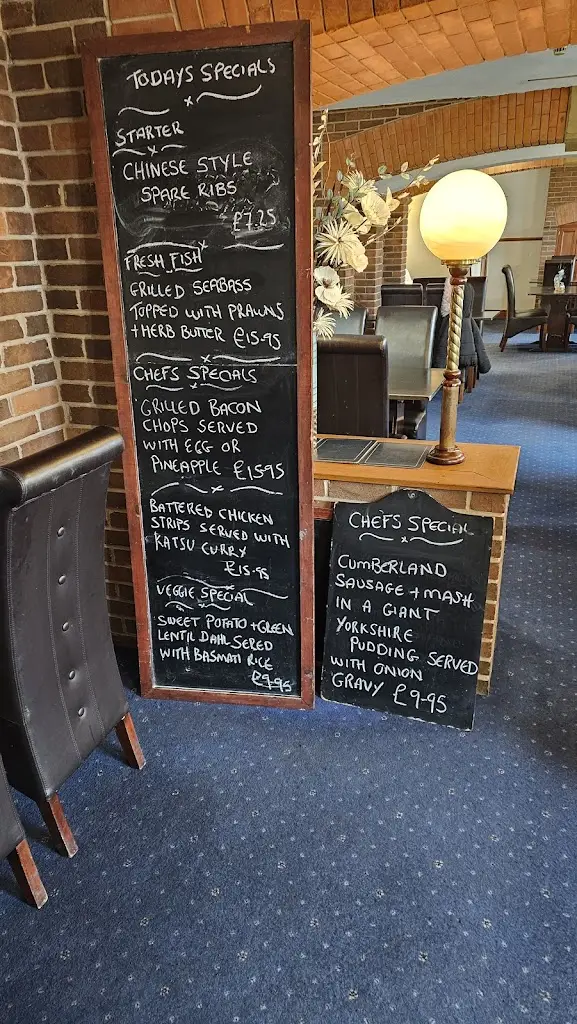 TODAYS SPECIALS
STARTER
CHINESE STYLE
SPARE RIBS
£7.25
FRESH FISH
GRILLED SEABASS
TOPPED WITH PRAWNS
+ HERB BUTTER £15.95
CHEFS SPECIALS
GRILLED BACON
CHOPS SERVED
WITH EGG OR
PINEAPPLE £15.95
BATTERED CHICKEN
STRIPS SERVED WITH
KATSU CURRY
£15.95
VEGGIE SPECIAL
SWEET POTATO + GREEN
LENTIL DAHL SERED
WITH BASMATI RICE
£9.95
CHEFS SPECIAL
CUMBERLAND
SAUSAGE + MASH
IN A GIANT
YORKSHIRE
PUDDING SERVED
WITH ONION
GRAVY £9.95